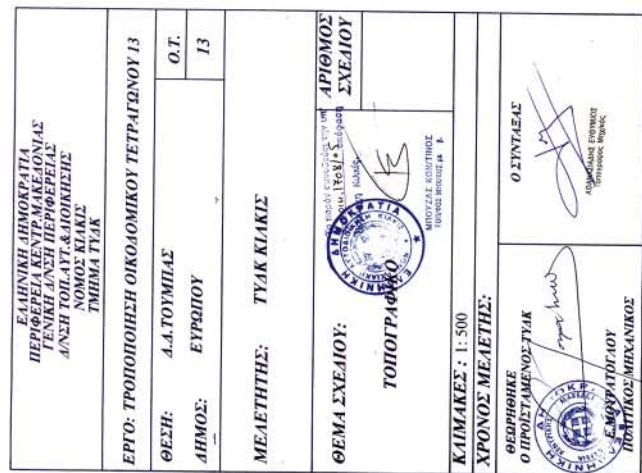 ΕΛΛΗΝΙΚΗ ΔΗΜΟΚΡΑΤΙΑ
ΠΕΡΙΦΕΡΕΙΑ ΚΕΝΤΡ.ΜΑΚΕΔΟΝΙΑΣ
ΓΕΝΙΚΗ Δ/ΝΣΗ ΠΕΡΙΦΕΡΕΙΑΣ
Δ/ΝΣΗ ΤΟΠ.ΑΥΤ.&ΔΙΟΙΚΗΣΗΣ
ΝΟΜΟΣ ΚΙΛΚΙΣ
ΤΜΗΜΑ ΤΥΔΚ
ΕΡΓΟ: ΤΡΟΠΟΠΟΙΗΣΗ ΟΙΚΟΔΟΜΙΚΟΥ ΤΕΤΡΑΓΩΝΟΥ 13
ΘΕΣΗ: Δ.Δ.ΤΟΥΜΠΑΣ Ο.Τ.
ΔΗΜΟΣ: ΕΥΡΩΠΟΥ 13
ΜΕΛΕΤΗΤΗΣ: ΤΥΔΚ ΚΙΛΚΙΣ
ΘΕΜΑ ΣΧΕΔΙΟΥ:
ΤΟΠΟΓΡΑΦΙΚΟ
ΑΡΙΘΜΟΣ
ΣΧΕΔΙΟΥ
παρόν συνοδεύει την υπ'
1708 απόφαση
Κιλκίς
ΜΠΟΥΖΑΣ ΚΩΝ/ΤΙΝΟΣ
ΚΛΙΜΑΚΕΣ : 1: 500
ΧΡΟΝΟΣ ΜΕΛΕΤΗΣ:
ΘΕΩΡΗΘΗΚΕ
Ο ΠΡΟΪΣΤΑΜΕΝΟΣ ΤΥΔΚ
Ε.ΜΟΥΡΑΤΟΓΛΟΥ
ΠΟΛΙΤΙΚΟΣ ΜΗΧΑΝΙΚΟΣ
Ο ΣΥΝΤΑΞΑΣ
ΕΥΘΥΜΙΟΣ
Τοπογράφος Μηχ/κός